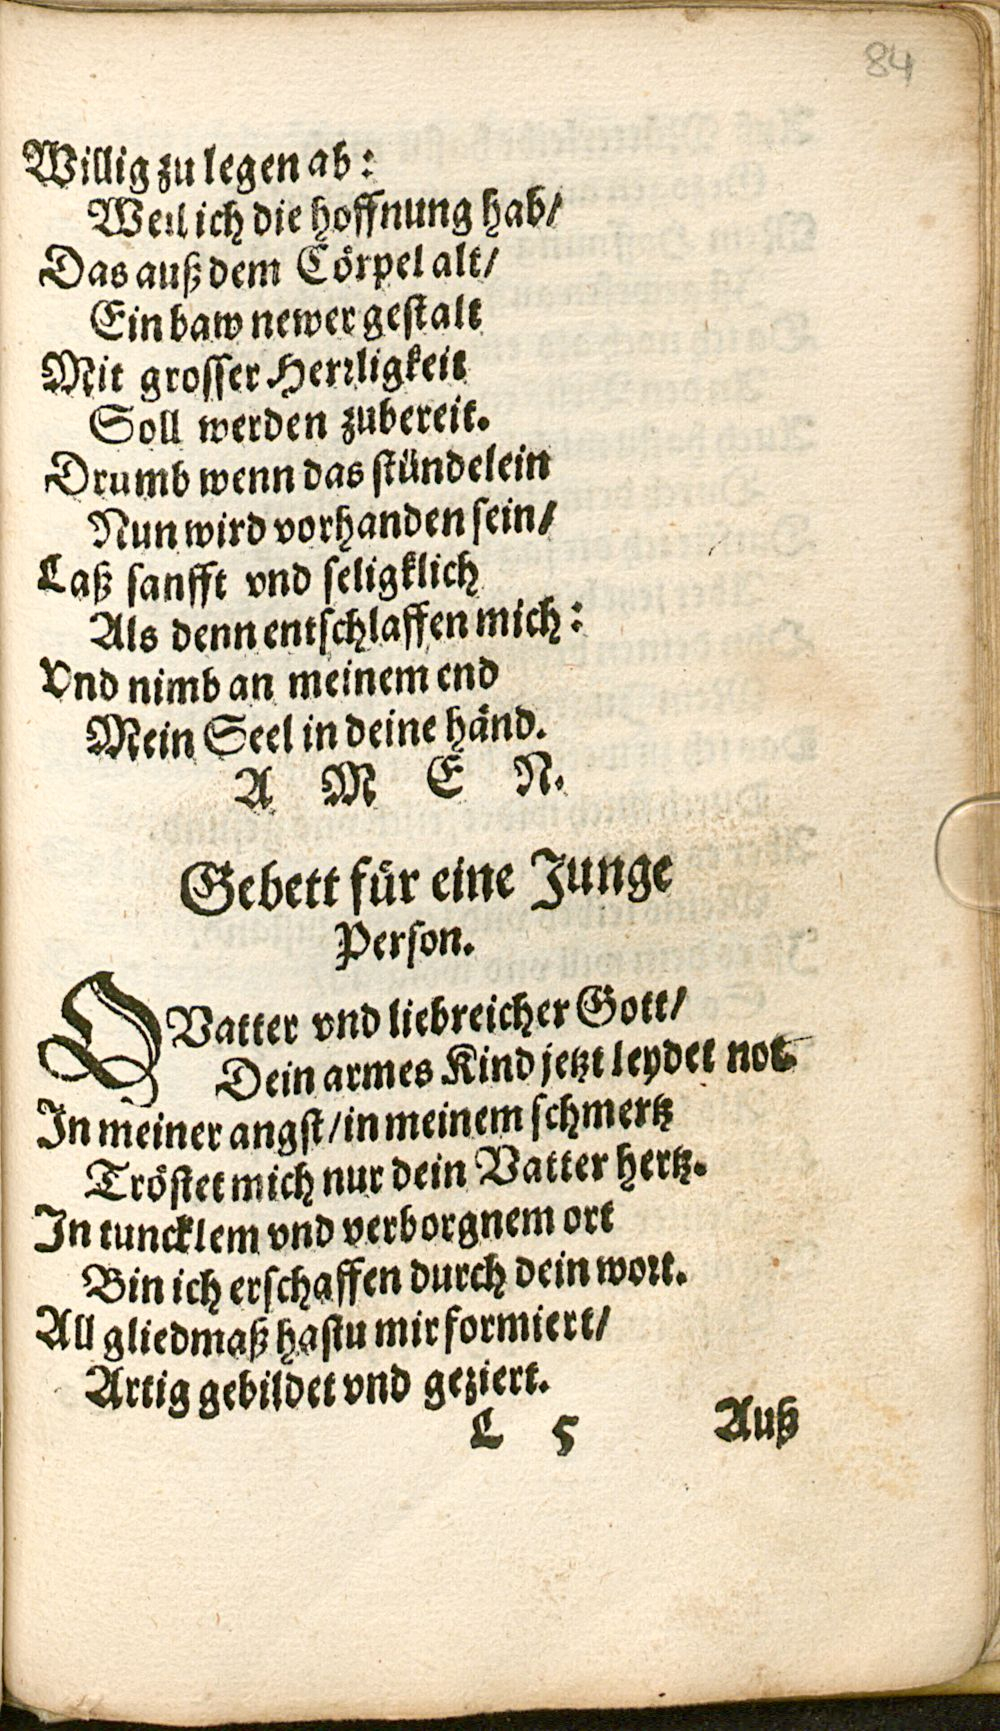 84
Willig zu legen ab:
Weil ich die hoffnung hab/
Das auß dem Cörpel alt/
Ein baw newer gestalt
Mit grosser Herrligkeit
Soll werden zubereit.
Drumb wenn das stündelein
Nun wird vorhanden sein/
Laß sanfft vnd seligklich
Als denn entschlaffen mich:
Vnd nimb an meinem end
Mein Seel in deine händ.
A M E N.
Gebett für eine Junge
Person.
O Vatter vnd liebreicher Gott/
Dein armes Kind jetzt leydet not.
In meiner angst/ in meinem schmertz
Tröstet mich nur dein Vatter hertz.
In tuncklem vnd verborgnem ort
Bin ich erschaffen durch dein wort.
All gliedmaß hastu mir formiert/
Artig gebildet vnd geziert.
L 5 Auß